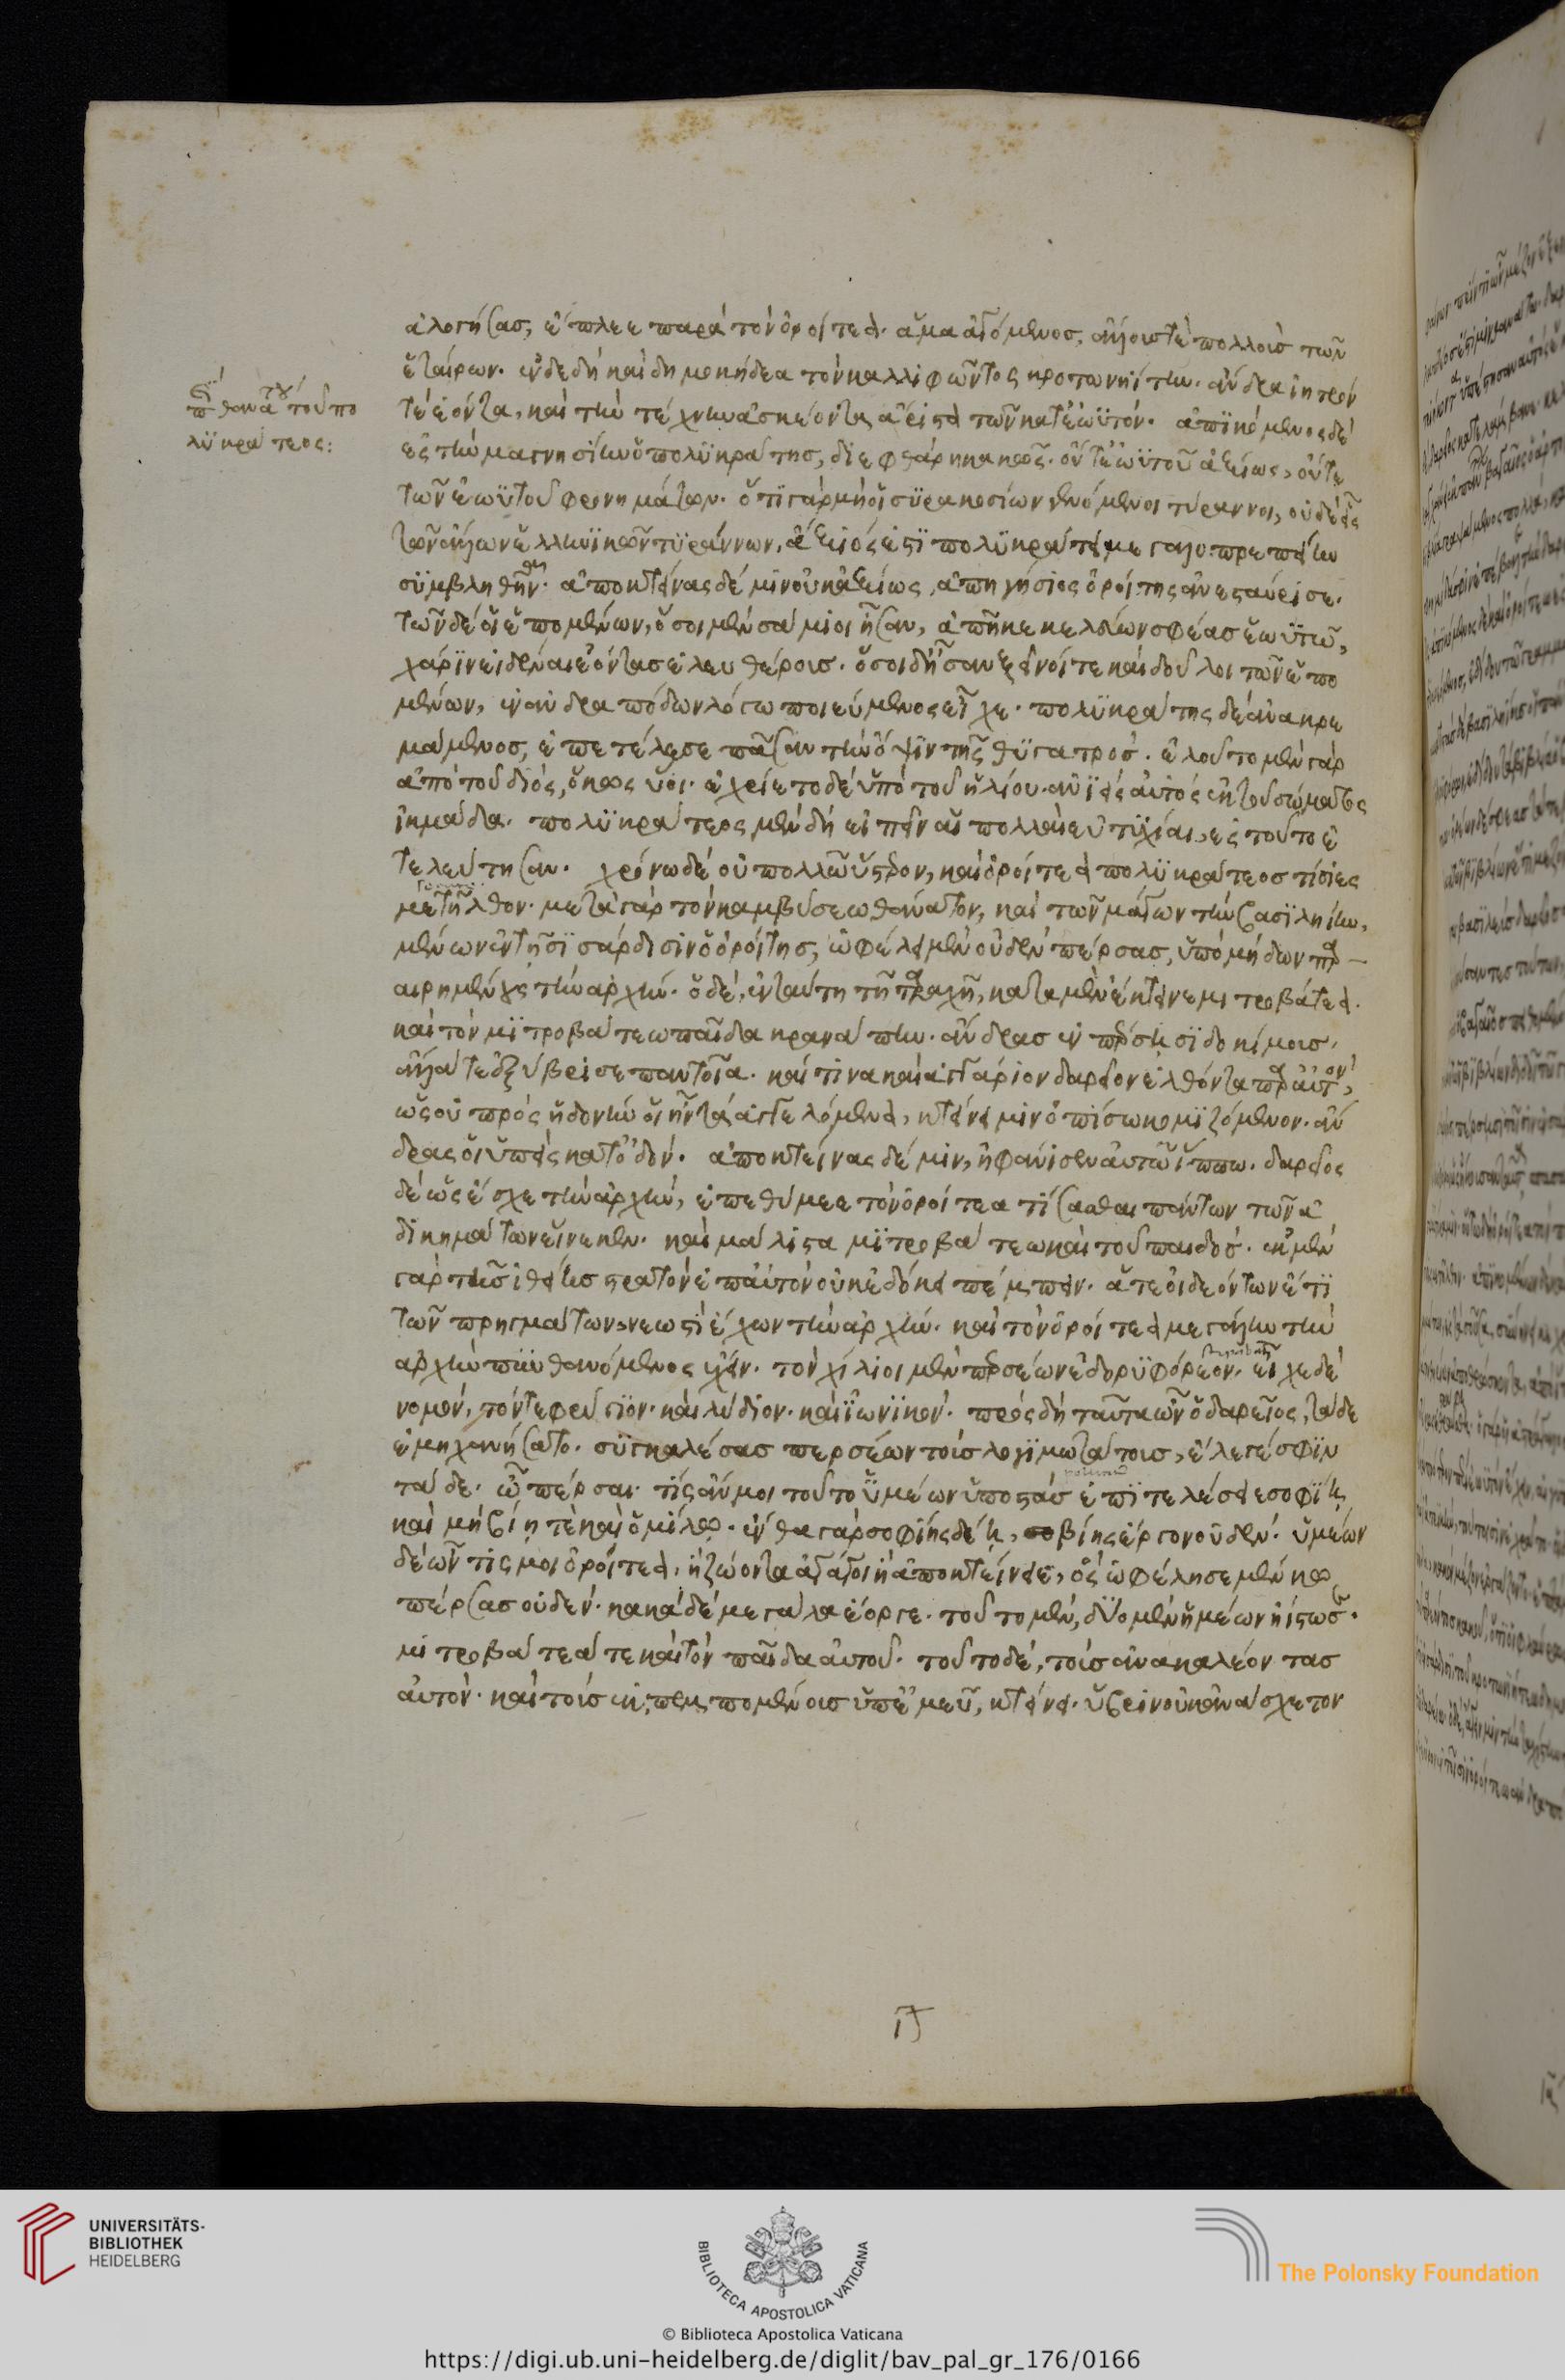 θανάτου τοῦ πο
λϋκράτεος:
ἀλογήσας, ἔπλεε παρὰ τὸν ὀροίτεα. ἅμα ἀγόμενος, ἄλλους τὲ πολλοὺς τῶν
ἑταίρων. ἐν δὲ δὴ καὶ δημοκήδεα τὸν καλλιφῶντος κροτωνιήτην. ἄνδρα ἰητρόν
τὲ ἐόντα, καὶ τὴν τέχνην ἀσκέοντα ἄριστα τῶν κατ' ἑωϋτόν. ἀπϊκόμενος δὲ
ἐς τὴν μαγνησίην ὁ πολϋκράτης, διεφθάρη κακῶς. οὔτε ἑωϋτοῦ ἀξίως, οὔτε
τῶν ἑωϋτοῦ φρονημάτων. ὅτϊ γὰρ μὴ οἱ σϋρακοσίων γενόμενοι τύραννοι, οὐδὲ εἷς
τῶν ἄλλων ἑλληνϊκῶν τϋράννων, ἄξιός ἐστϊ πολϋκράτεϊ μεγαλοπρεπείην
σϋμβληθῆναι. ἀποκτείνας δέ μιν οὐκ ἀξίως ἀπηγήσιος ὀροίτης ἀνεσταύρισε.
τῶν δέ οἱ ἑπομένων, ὅσοι μὲν σάμιοι ἦσαν, ἀπῆκε κελεύων σφέας ἑωϋτῶ,
χάρϊν εἰδέναι ἐόντας ἐλευθέρους. ὅσοι δὲ ἦσαν ξεῖνοί τε καὶ δοῦλοι τῶν ἑπο
μένων, ἐν ἀνδραπόδων λόγω ποιεύμενος εἶχε. πολϋκράτης δὲ ἀνακρε
μάμενος, ἐπετέλεσε πᾶσαν τὴν ὄψιν τῆς θϋγατρός. ἐλοῦτο μὲν γὰρ
ἀπὸ τοῦ διός, ὅκως ὕοι. ἐχρίετο δὲ ὑπὸ τοῦ ἡλίου. ἀνϊεὶς αὐτὸς ἐκ τοῦ σώματος
ἰκμάδα. πολϋκράτεος μὲν δὴ εἰπεῖν αἱ πολλαὶ εὐτϋχίαι, ἐς τοῦτο ἐ
τελεύτησαν. χρόνω δὲ οὐ πολλῶ ὕστερον, καὶ ὀροίτεα πολϋκράτεος τίσιες
μετῆλθον. μετὰ γὰρ τὸν καμβύσεω θάνατον, καὶ τῶν μάγων τὴν βασϊληίην,
μένων ἐν τῆσϊ σάρδισιν ὁ ὀροίτης, ὠφέλει μὲν οὐδὲν πέρσας, ὑπὸ μήδων παρ
αιρημένους τὴν ἀρχήν. ὁ δὲ, ἐν ταύτη τῆ ταραχῆ, κατὰ μὲν ἔκτεινε μιτροβάτεα.
καὶ τὸν μϊτροβάτεω παῖδα κρανάπην. ἄνδρας ἐν πέρσησϊ δοκίμους.
ἄλλα τε ἐξύβρισε παντοῖα. καί τινα καὶ ἀγγαρίον δαρείου ἐλθόντα παρ' αὐτόν,
ὡς οὐ πρὸς ἡδονήν οἱ ἦν τὰ ἀγγελόμενα, κτείνει μιν ὀπίσω κομϊζόμενον. ἄν
δρας οἱ ὑπεὶς κατ' ὁδόν. ἀποκτείνας δέ μιν, ἠφάνισεν αὐτῶ ἵππω. δαρεῖος
δὲ ὡς ἔσχε τὴν ἀρχήν, ἐπεθύμεε τὸν ὀροίτεα τίσασθαι πάντων τῶν ἀ
δικημάτων εἵνεκεν. καὶ μάλιστα μϊτροβάτεω καὶ τοῦ παιδός. ἐκ μὲν
γὰρ τῆς ἰθείης στρατὸν ἐπ' αὐτὸν οὐκ ἐδόκει πέμπειν. ἅτε οἰδεόντων ἔτϊ
τῶν πρηγμάτων, νεωστὶ ἔχων τὴν ἀρχήν. καὶ τὸν ὀροίτεα μεγάλην τὴν
ἀρχὴν πϋνθανόμενος ἔχειν. τὸν χίλιοι μὲν περσέων ἐδορϋφόρεον. εἶχε δὲ
νομόν, τόν τε φρύγϊον. καὶ λύδιον. καὶ ἰωνϊκόν. πρὸς δὴ ταῦτα ὦν ὁ δαρεῖος, τάδε
ἐμηχανήσατο. συγκαλέσας περσέων τοὺς λογϊμωτάτους, ἔλεγέ σφϊν
τάδε. ὦ πέρσαι. τίς ἄν μοι τοῦτο ὑμέων ὑποστὰς ἐπϊτελέσειε σοφϊη
καὶ μὴ βίη τὲ καὶ ὁμίλω. ἔνθα γὰρ σοφίης δέη, βίης ἔργον οὐδέν. ὑμέων
δὲ ὦν τίς μοι ὀροίτεα, ἢ ζώοντα ἀγάγοι ἢ ἀποκτείνειε, ὃς ὠφέλησε μέν κω
πέρσας οὐδέν. κακὰ δὲ μεγάλα ἔοργε. τοῦτο μὲν, δύο μὲν ἡμέων ἠίστωσε.
μιτροβάτεά τε καὶ τὸν παῖδα αὐτοῦ. τοῦτο δὲ, τοὺς ἀνακαλέοντας
αὐτὸν. καὶ τοὺς ἐκπεμπομένους ὑπ' ἐμεῦ, κτείνει. ὕβριν οὐκ ἀνάσχετον
UNIVERSITÄTS-
BIBLIOTHEK
HEIDELBERG
BIBLIOTECA APOSTOLICA VATICANA
The Polonsky Foundation
© Biblioteca Apostolica Vaticana
https://digi.ub.uni-heidelberg.de/diglit/bav_pal_gr_176/0166